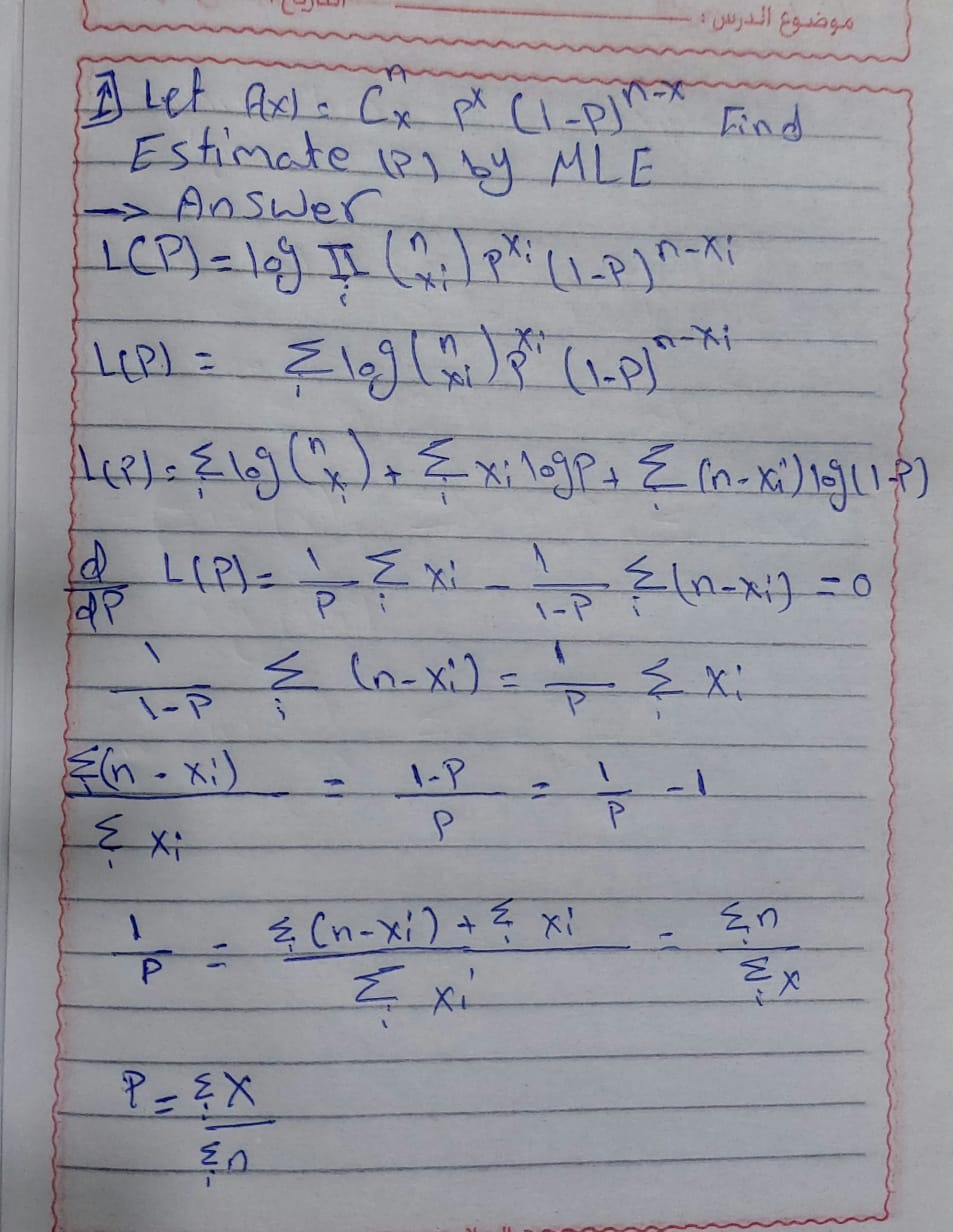 موضوع الدرس :
1) Let f(x) = Cₓⁿ pˣ (1-P)ⁿ⁻ˣ Find
Estimate (P) by MLE
→ Answer
L(P) = log Π_i (n x_i) p^{x_i} (1-P)^{n-x_i}
L(P) = Σ_i log (n x_i) p^{x_i} (1-P)^{n-x_i}
L(P) = Σ_i log (n x_i) + Σ_i x_i log P + Σ_i (n-x_i) log (1-P)
d/dP L(P) = 1/P Σ_i x_i - 1/(1-P) Σ_i (n-x_i) = 0
1/(1-P) Σ_i (n-x_i) = 1/P Σ_i x_i
Σ_i (n-x_i) / Σ_i x_i = (1-P)/P = 1/P - 1
1/P = (Σ_i (n-x_i) + Σ_i x_i) / Σ_i x_i = Σ_i n / Σ_i x
P = Σ_i X / Σ_i n